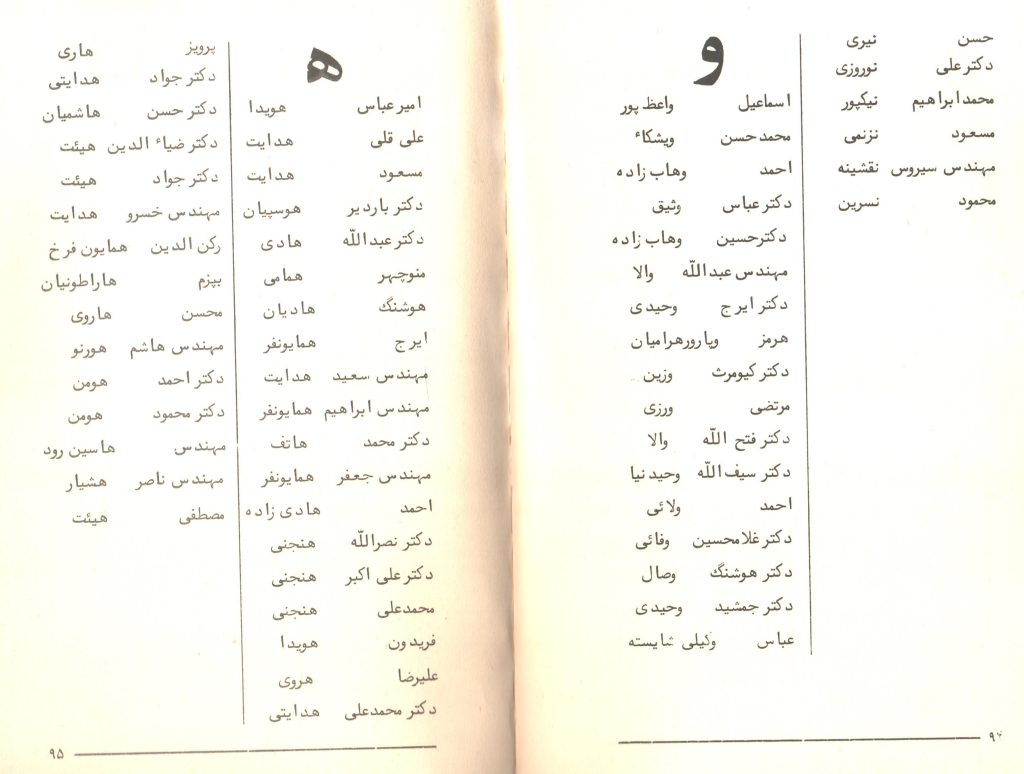 حسن نیری
دکتر علی نوروزی
محمد ابراهیم نیکپور
مسعود نزنمی
مهندس سیروس نقشینه
محمود نسرین
و
اسماعیل واعظ پور
محمد حسن ویشکاء
احمد وهاب زاده
دکتر عباس وثیق
دکتر حسین وهاب زاده
مهندس عبدالله والا
دکتر ایرج وحیدی
هرمز وپارورهرامیان
دکتر کیومرث وزین
مرتضی ورزی
دکتر فتح الله والا
دکتر سیف الله وحیدنیا
احمد ولائی
دکتر غلامحسین وفائی
دکتر هوشنگ وصال
دکتر جمشید وحیدی
عباس وکیلی شایسته
۹۴
ه
امیر عباس هویدا
علی قلی هدایت
مسعود هدایت
دکتر باردیر هوسپیان
دکتر عبدالله هادی
منوچهر همامی
هوشنگ هادیان
ایرج همایونفر
مهندس سعید هدایت
مهندس ابراهیم همایونفر
دکتر محمد هاتف
مهندس جعفر همایونفر
احمد هادی زاده
دکتر نصرالله هنجنی
دکتر علی اکبر هنجنی
محمدعلی هنجنی
فریدون هویدا
علیرضا هروی
دکتر محمدعلی هدایتی
پرویز هاری
دکتر جواد هدایتی
دکتر حسن هاشمیان
دکتر ضیاء الدین هیئت
دکتر جواد هیئت
مهندس خسرو هدایت
رکن الدین همایون فرخ
بپزم هاراطونیان
محسن هاروی
مهندس هاشم هورنو
دکتر احمد هومن
دکتر محمود هومن
مهندس هاسین رود
مهندس ناصر هشیار
مصطفی هیئت
۹۵